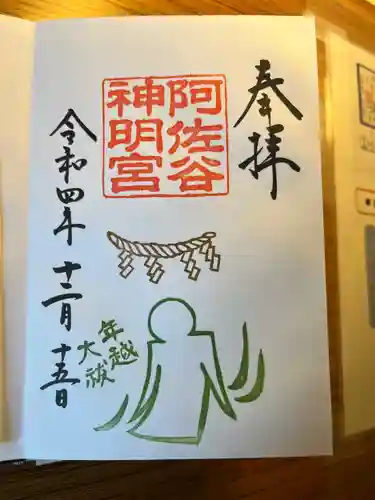 奉拝
阿佐谷
神明宮
年越
大祓
令和四年 十二月 十五日